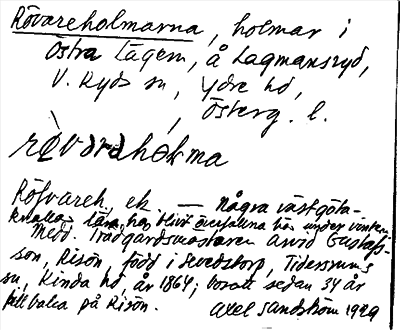 Rövareholmarna, holmar i
Östra Lägern, å Lagmansryd,
V. Ryds sn, Ydre hd,
Österg. l.
Röfvareh. ek. — Några västgöta-
knallar lära ha blivit överfallna här under vintern
Medd. Trädgårdsmästaren Arvid Gustafs-
son, Risön, född i Sevedstorp, Tidersrums
sn, Kinda hd, år 1864; boratt sedan 34 år
tillbaka på Risön. Axel Sandström 1929